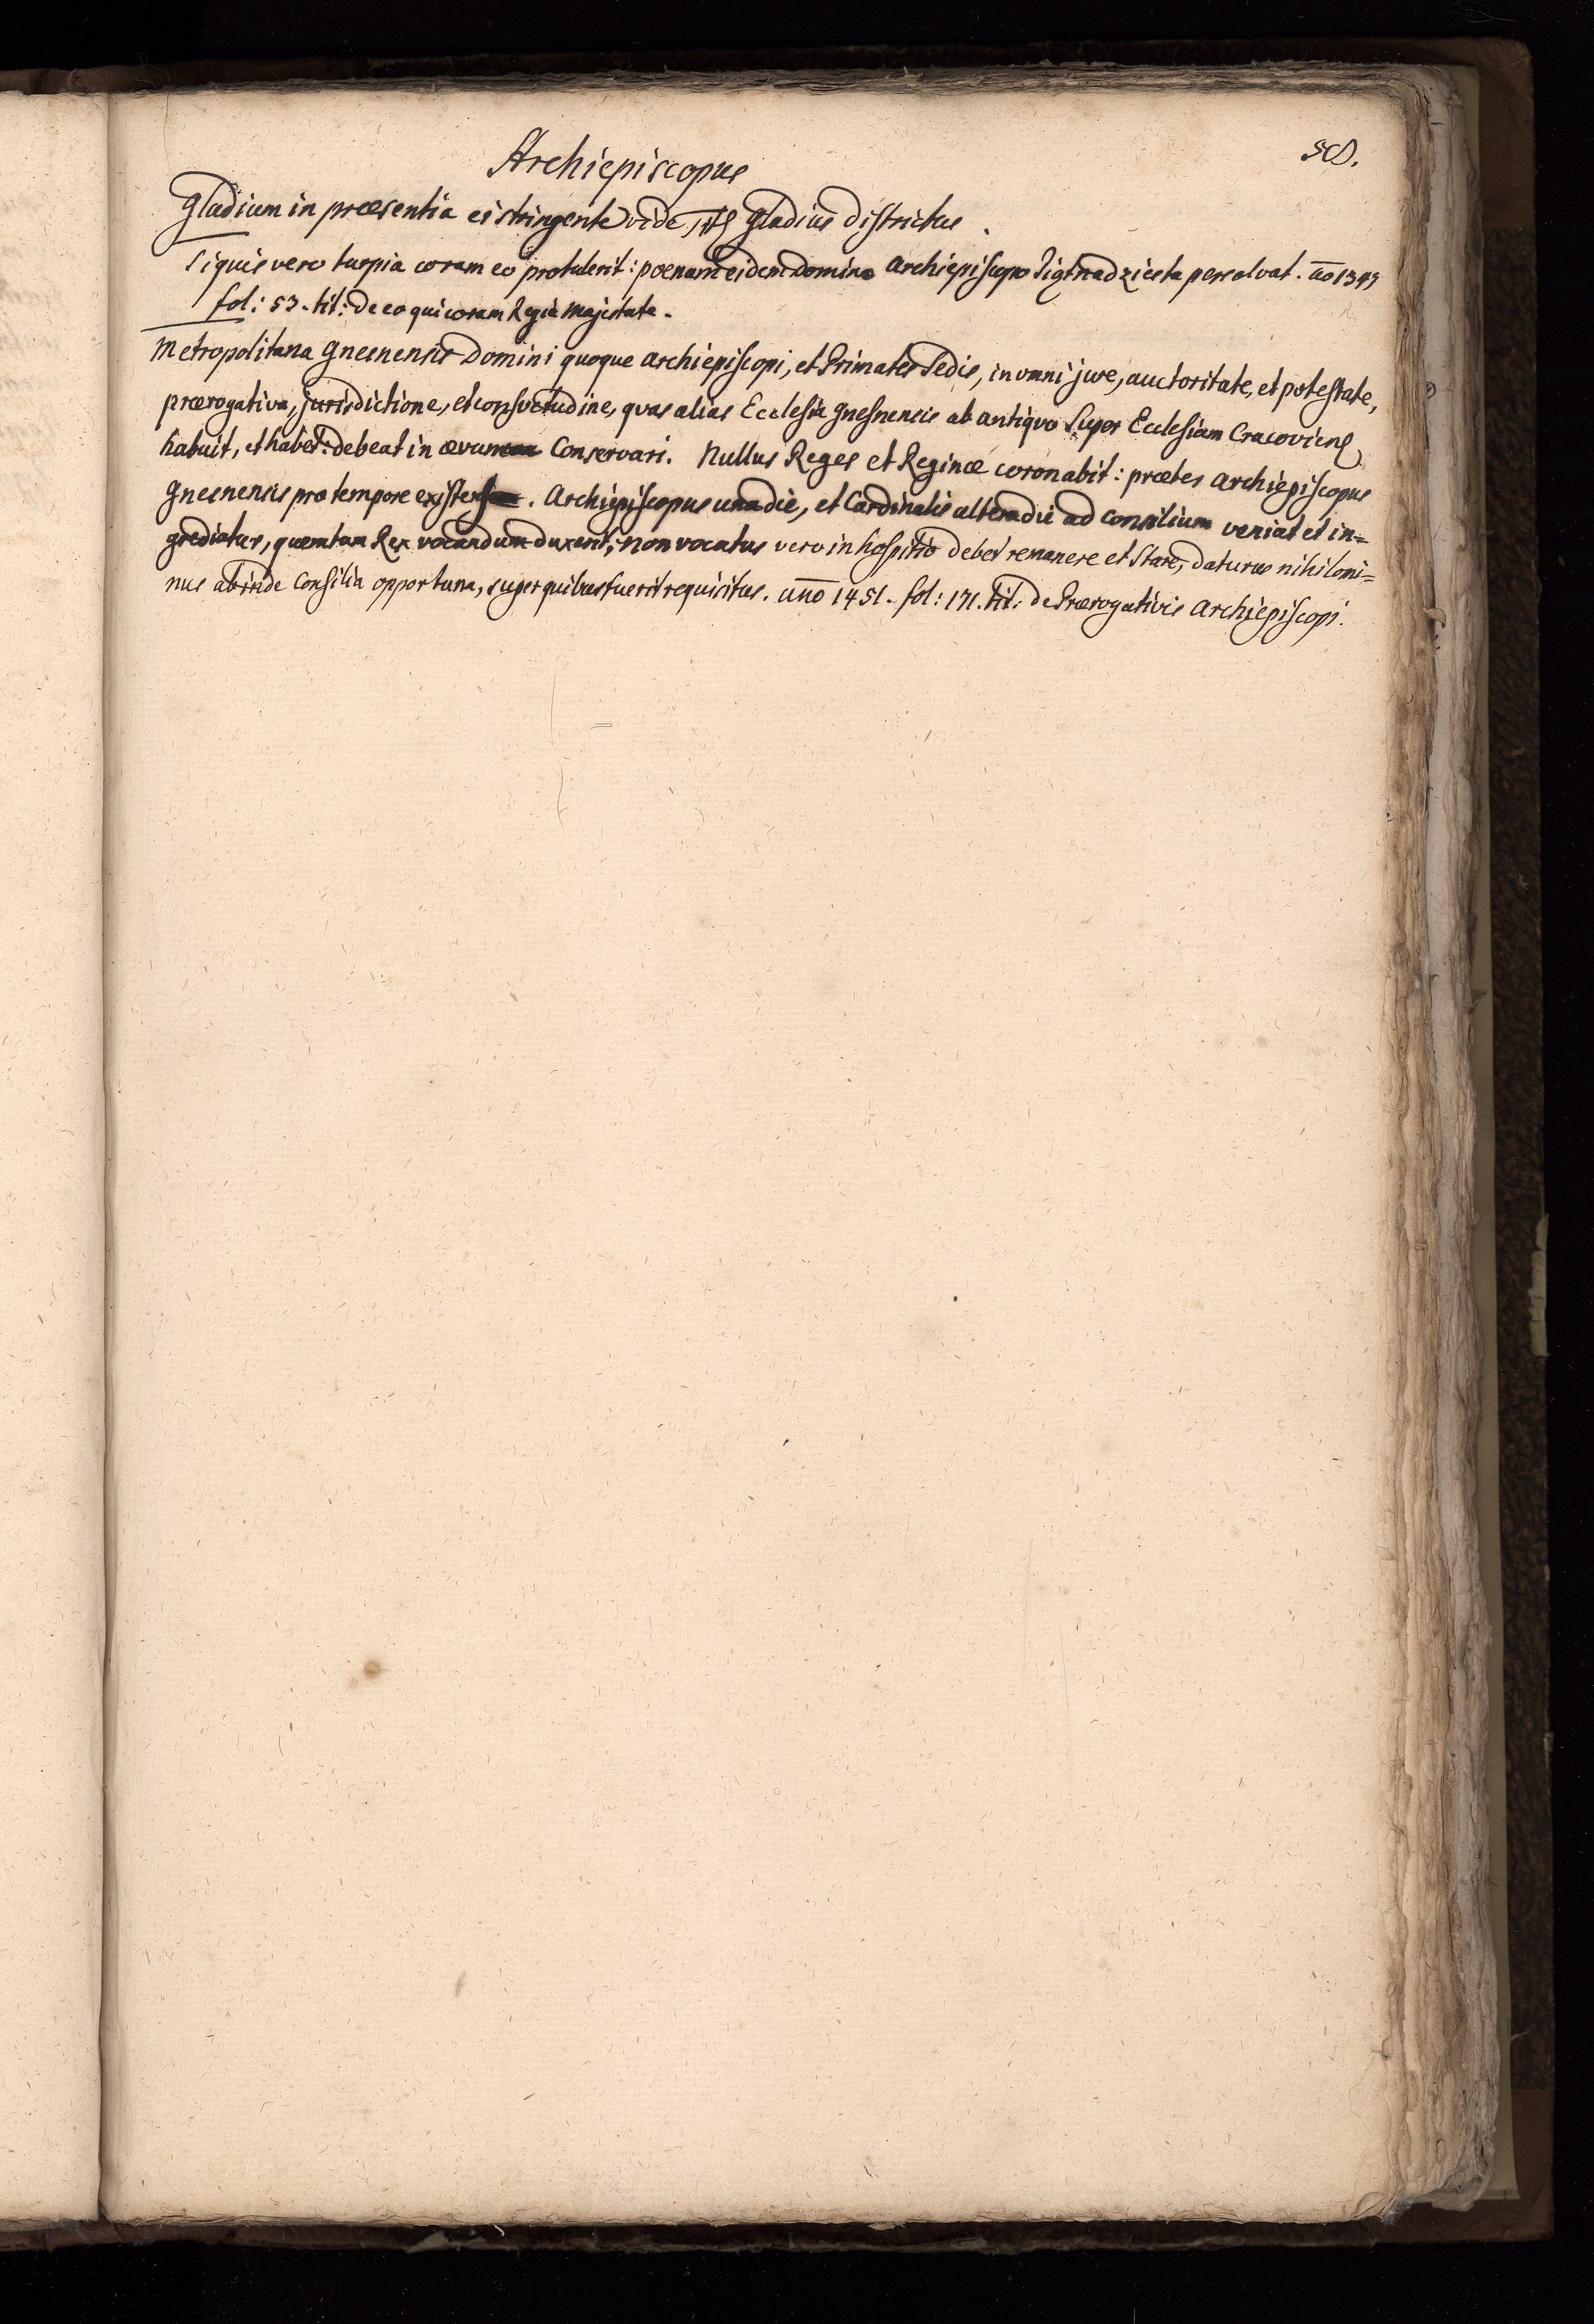 Archiepiscopus
Gladium in præsentia ei stringente vide Gladius districtus.
Si quis vero turpia coram eo protulerit: poenam eidem domino Archiepiscopo Pigtnadziesta persolvat. año 1347
fol: 53. tit: De eo qui coram Regia Majestate.
Metropolitana Gnesnensis Domini quoque Archiepiscopi, et Primates Sedis, in omni jure, auctoritate, et potestate,
prærogativa, jurisdictione, et consvetudine, qvas alias Ecclesia Gnesnensis ab antiqvo Super Ecclesiam Cracovien
habuit, et habet: debeat in ævum Conservari. Nullus Reges et Reginæ coronabit: præter Archiepiscopus
Gnesnensis pro tempore existens. Archiepiscopus una die, et Cardinalis altera die ad consilium veniat et in=
grediatur, quem tam Rex vocandum duxerit; non vocatus vero in hospitio debet remanere et Stare, daturus nihilomi=
nus ab inde Consilia opportuna, super quibus fuerit requisitus. anno 1451. fol: 171. tit: de Prærogativis Archiepiscopi.